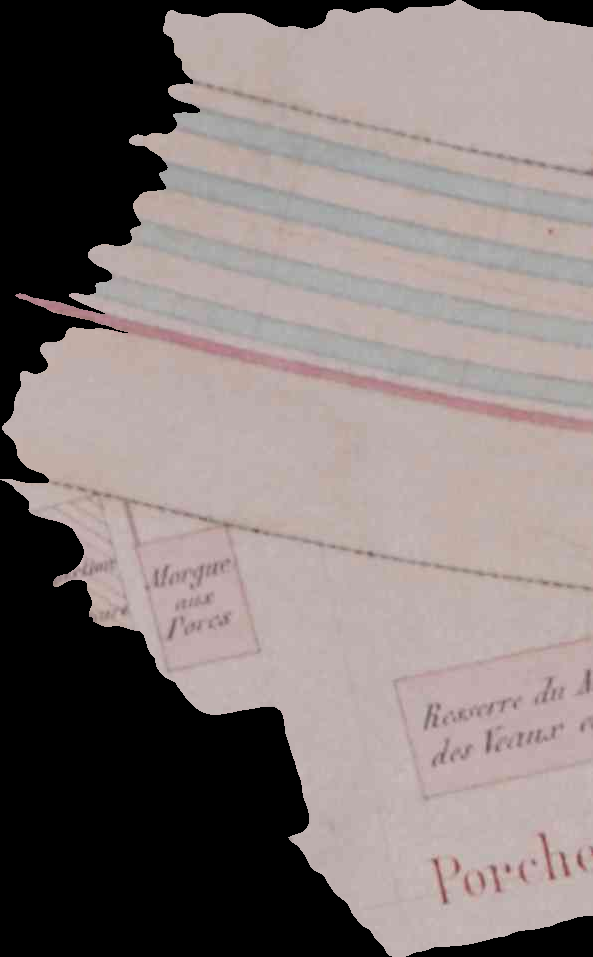 Morgue
aux
Porcs
Resserre du
des Veaux
Porche